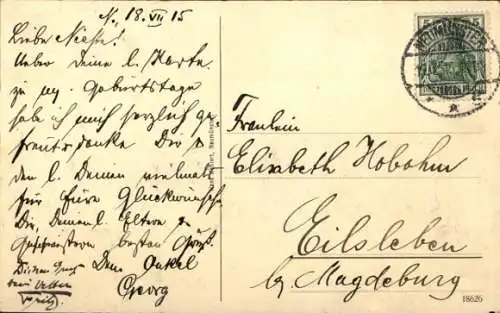 N., 18. VII 15
Liebe Nichte!
Ueber Deine l. Karte
zu m. Geburtstage
hab ich mich herzlich ge
freut danke Dir &
den l. Deinen vielmals
für Eure Glückwünsche.
Dir, Deinen l. Eltern &
Geschwistern besten Gruß
Dein Onkel
Georg
Fräulein
Elisabeth Hobohm
Eilsleben
bz. Magdeburg
18626
5 5
NEUMÜNSTER